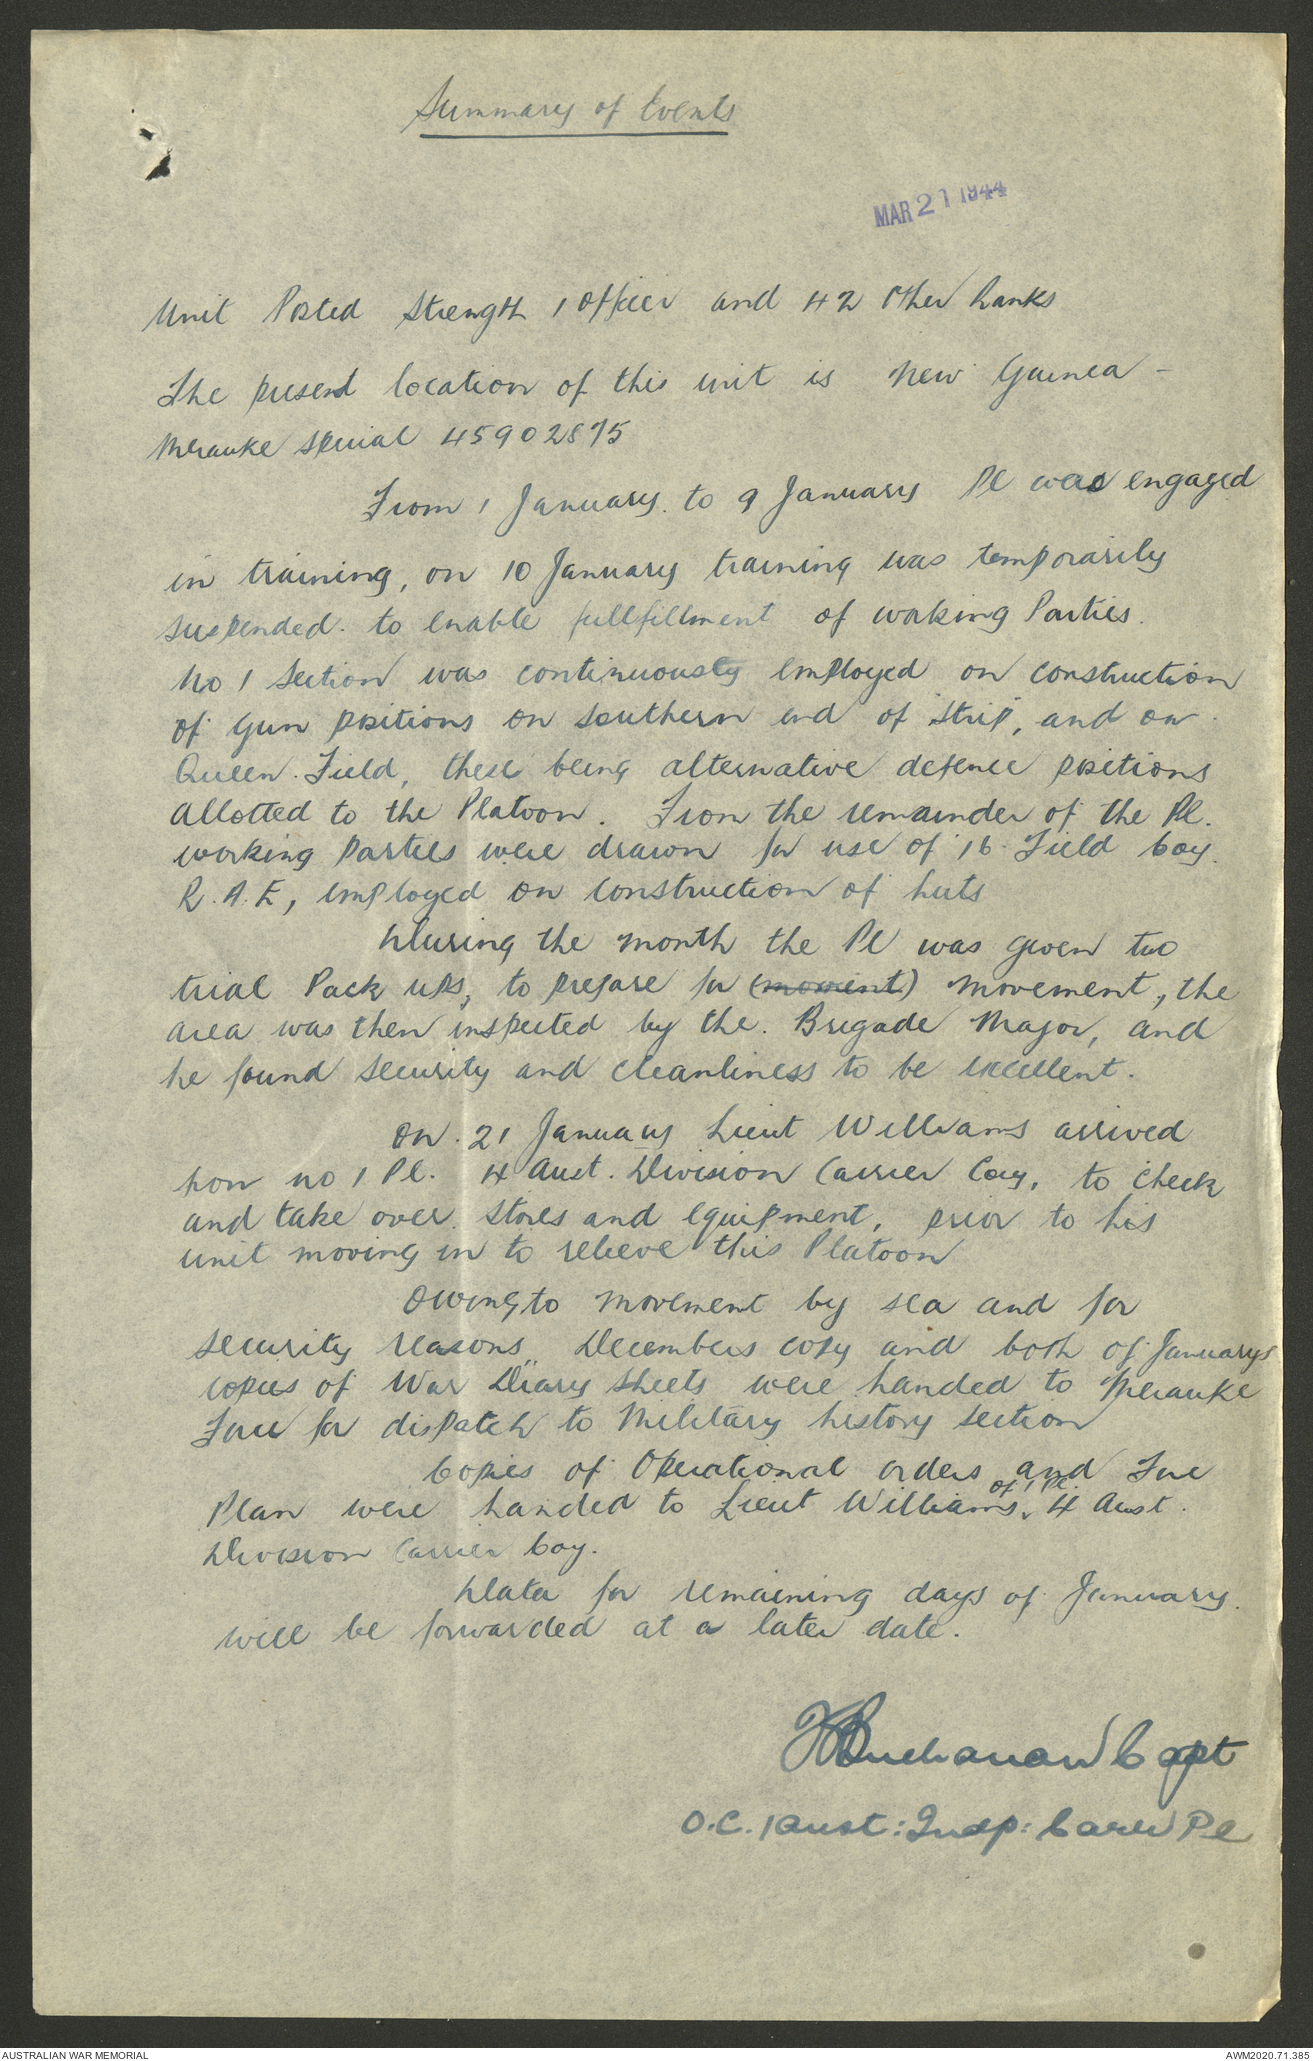 Summary of Events
MAR 21 1944
Unit Posted Strength 1 Officer and 42 Other Ranks
The present location of this unit is New Guinea -
Merauke Special 45902875
From 1 January. to 9 January Pl was engaged
in training, on 10 January training was temporarily
suspended. to enable fullfillment of working Parties.
No 1 Section was continuously employed on construction
of gun positions on southern end of strip, and on
Queen. Field, these being alternative defence positions
allotted to the Platoon. From the remainder of the Pl.
working Parties were drawn for use of 16 Field Coy.
R.A.E, employed on construction of huts
During the month the Pl was given two
trial Pack ups, to prepare for (moment) movement, the
area was then inspected by the. Brigade Major, and
he found security and cleanliness to be excellent.
On. 21 January Lieut Williams arrived
from no 1 Pl. 4 Aust. Division Carrier Coy, to check
and take over stores and equipment, prior to his
unit moving in to relieve this Platoon
Owing to movement by sea and for
security reasons Decembers copy and both of Januarys
copies of War Diary sheets were handed to Merauke
Force for dispatch to Military history section
Copies of Operational orders and Fire
Plan were handed to Lieut Williams, of 1 Pl. 4 Aust.
Division Carrier Coy.
Data for remaining days of January.
will be forwarded at a later date.
Buchanan Capt
O.C. 1 Aust: Indp: Carr Pl
AUSTRALIAN WAR MEMORIAL
AWM2020.71.385